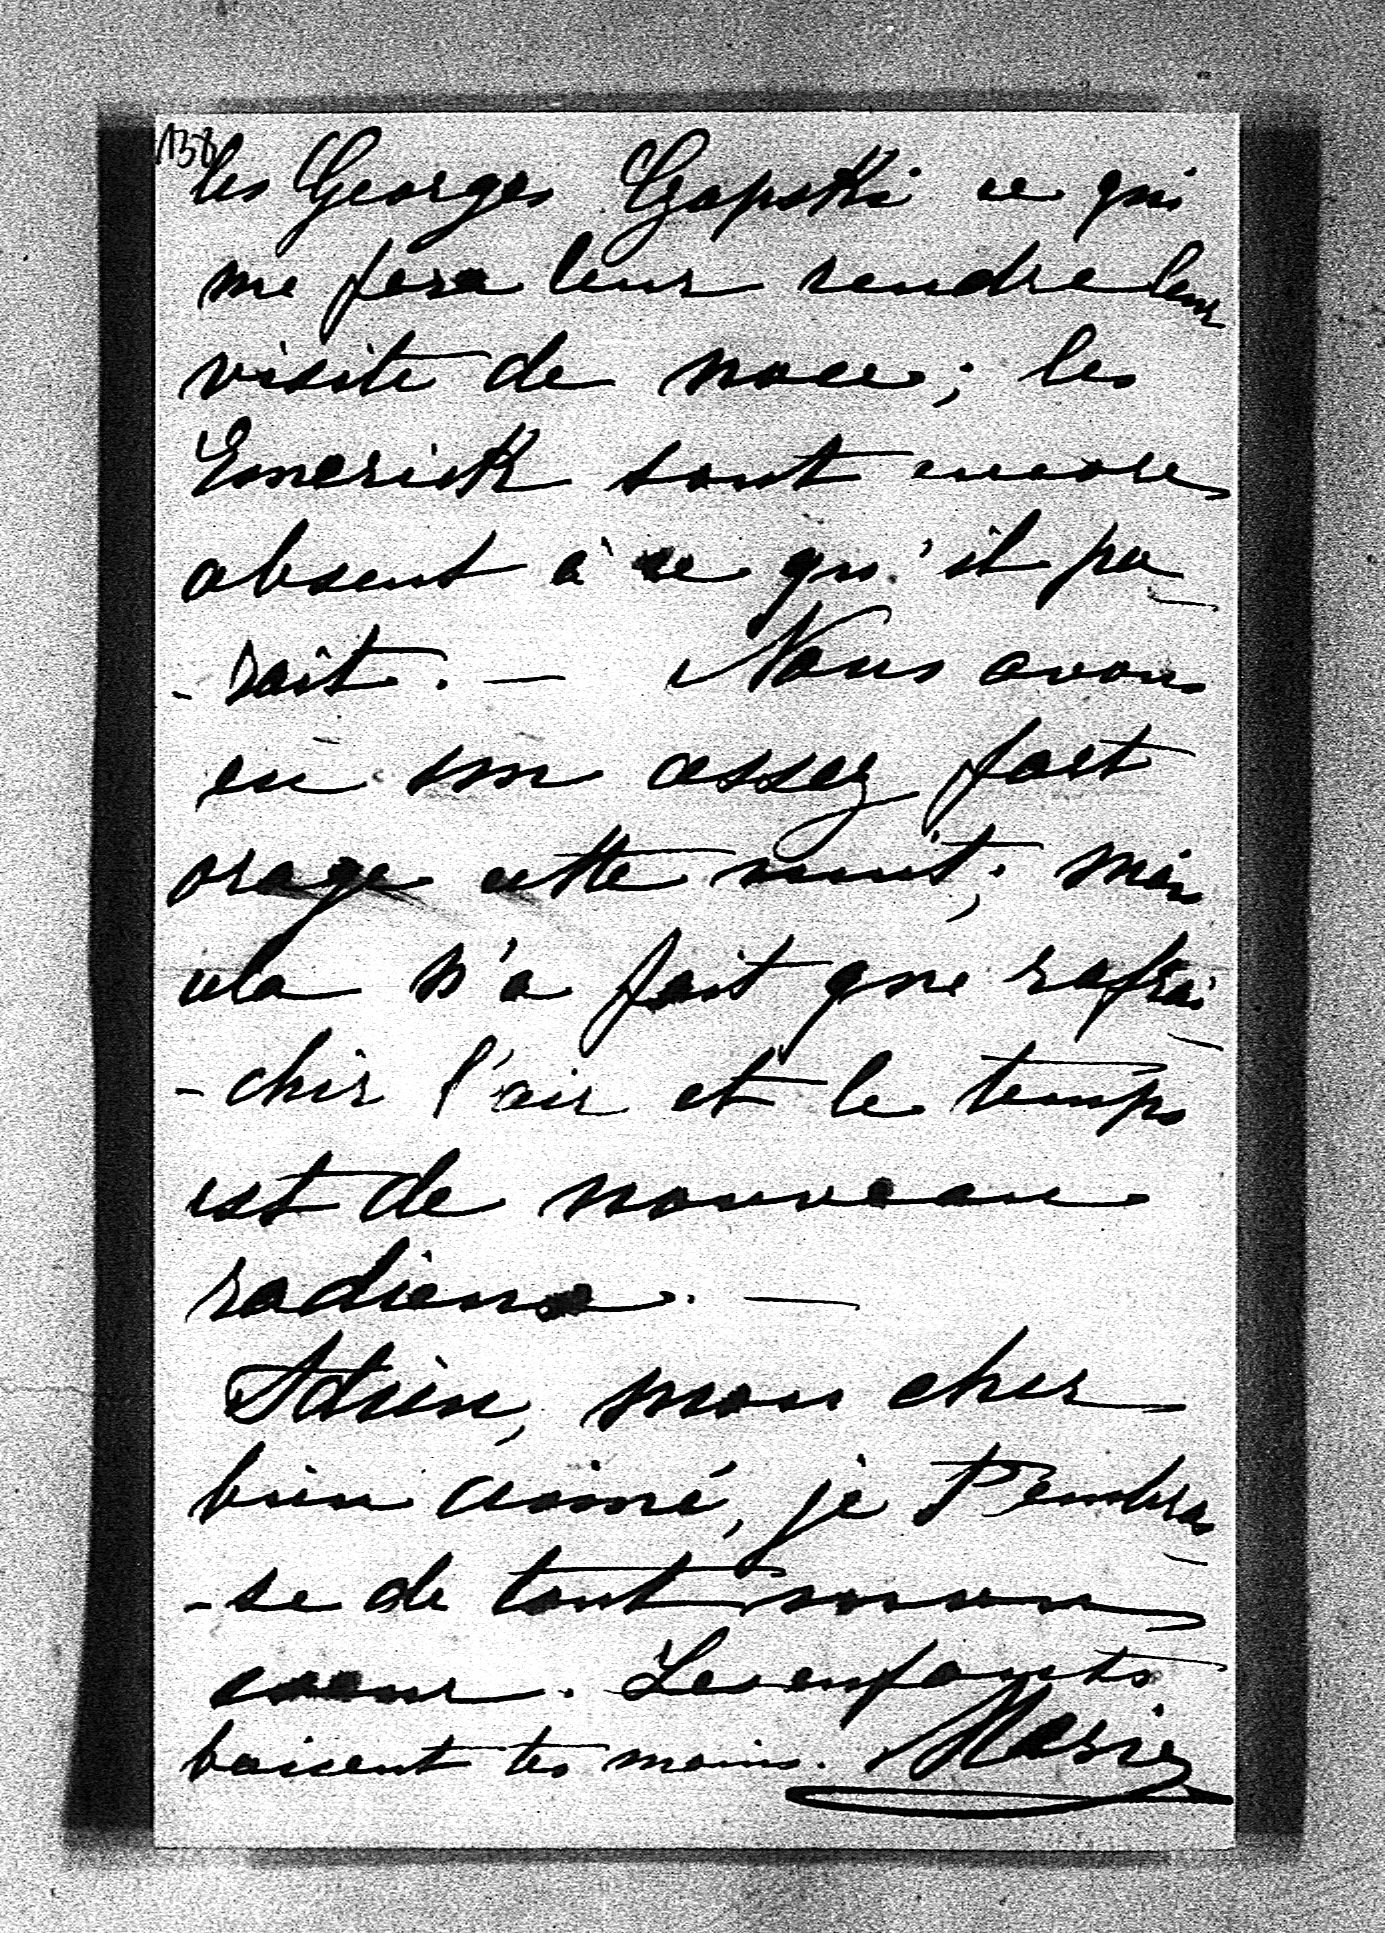 138
les Georges Czapski ce qui
me fera leur rendre leur
visite de noce; les
Emerick sont encore
absent à ce qu'il pa-
-rait. — Nous avons
eu un assez fort
orage cette nuit; mais
cela n'a fait que rafrai-
-chir l'air et le temps
est de nouveau
radieux. —
Adieu, mon cher
bien aimé, je t'embras-
-se de tout mon
coeur. Les enfants
baisent tes mains. Marie